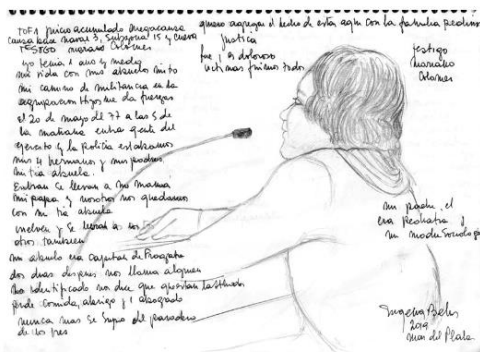 TOF1 juicio acumulado Megacausa
causa base naval 3, Subzona 15 y cueva
TESTIGO mariano Colomes
yo tenía 1 año y medio
mi vida con mis abuelos mito
mi camino de militancia en la
agrupación Hijos me da fuerzas
el 20 de mayo del 77 a las 5 de
la mañana entra gente del
ejercito y la policía estabamos
mis 4 hermanos y mis padres,
mi tía abuela.
Entran se llevan a mi mama
mi papa y nosotros nos quedamos
con mi tia abuela
vuelven y se llevan a los
otros también
mi abuelo era capitan de Fragata
dos dias despues nos llama alguien
no identificado nos dice que
pide comida, abrigo y 1 abogado
nunca mas se supo del paradero
de los tres
quiero agregar el hecho de estar aqui con la familia pedimos
Justicia
fue y es doloroso
victimas fuimos todos
testigo
mariano
Colomes
mi padre, el
era Pediatra y
mi madre Sociologa
Eugenia Bekeris
2019
Mar del Plata